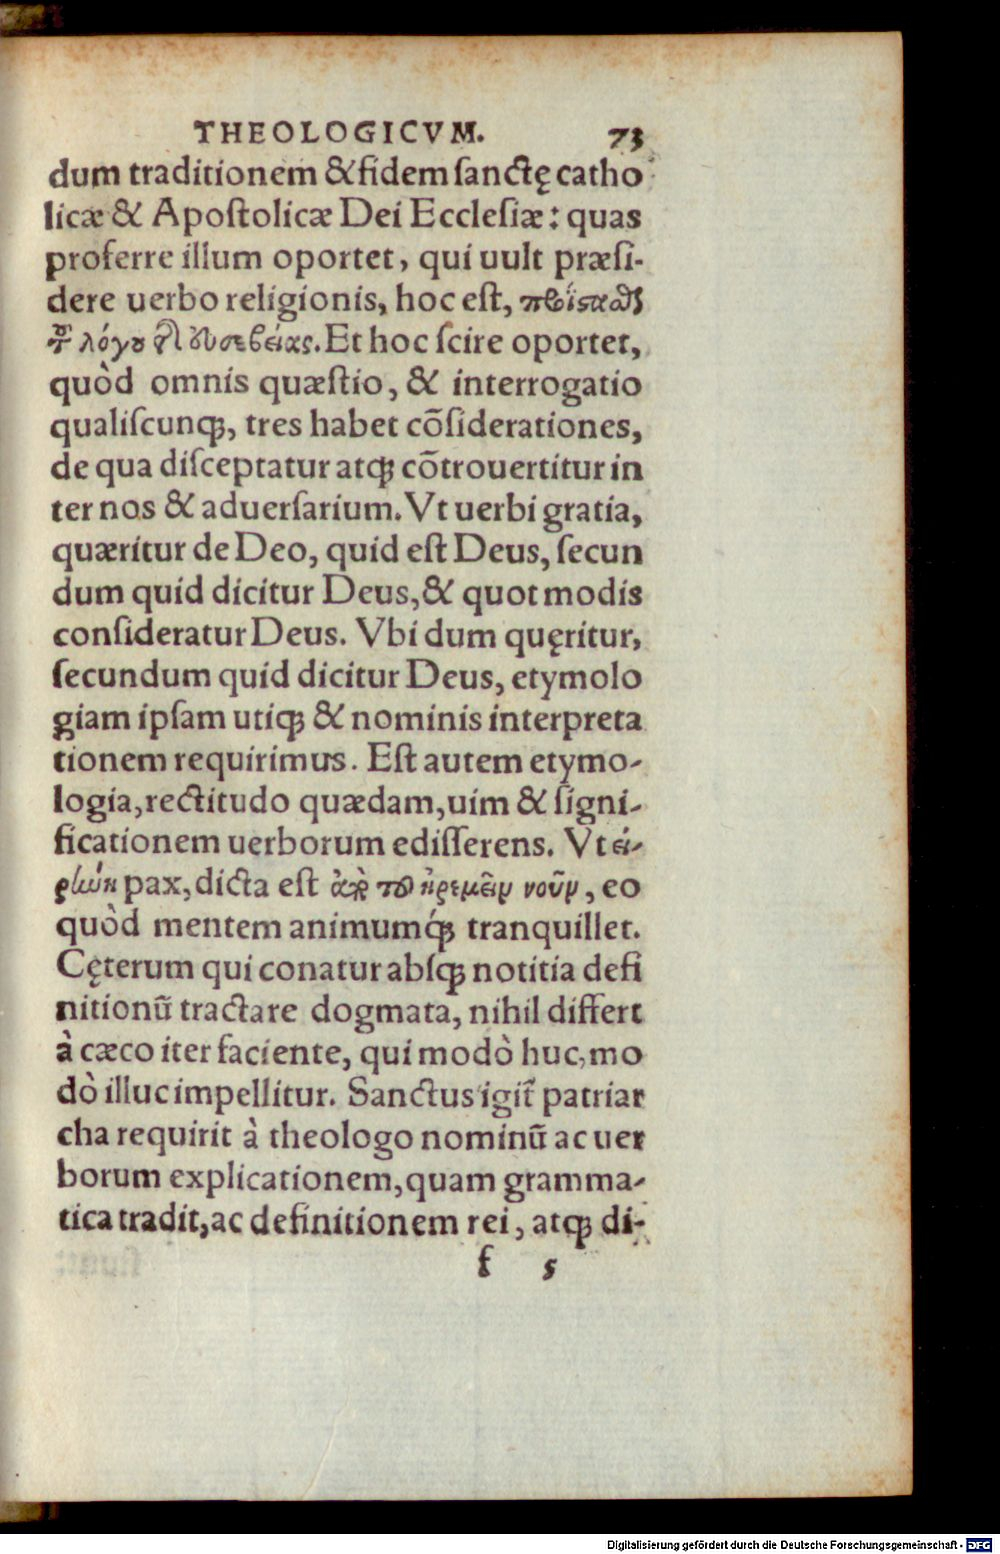 THEOLOGICVM. 73
dum traditionem & fidem ſanctę catho
licæ & Apoſtolicæ Dei Eccleſiæ: quas
proferre illum oportet, qui uult præſi-
dere uerbo religionis, hoc eſt, προΐστασθαι
τοῦ λόγου τῆς εὐσεβείας. Et hoc ſcire oportet,
quòd omnis quæſtio, & interrogatio
qualiſcunq;, tres habet cõſiderationes,
de qua diſceptatur atq; cõtrouertitur in
ter nos & aduerſarium. Vt uerbi gratia,
quæritur de Deo, quid eſt Deus, ſecun
dum quid dicitur Deus, & quot modis
conſideratur Deus. Vbi dum quęritur,
ſecundum quid dicitur Deus, etymolo
giam ipſam utiq; & nominis interpreta
tionem requirimus. Eſt autem etymo-
logia, rectitudo quædam, uim & ſigni-
ficationem uerborum edifferens. Vt εἰ-
ρήνη pax, dicta eſt ἀπὸ τοῦ ἠρεμεῖν νοῦν, eo
quòd mentem animumq́; tranquillet.
Cęterum qui conatur abſq; notitia defi
nitionũ tractare dogmata, nihil differt
à cæco iter faciente, qui modò huc, mo
dò illuc impellitur. Sanctus igit̃ patriar
cha requirit à theologo nominũ ac uer
borum explicationem, quam gramma-
tica tradit, ac definitionem rei, atq; di-
f 5